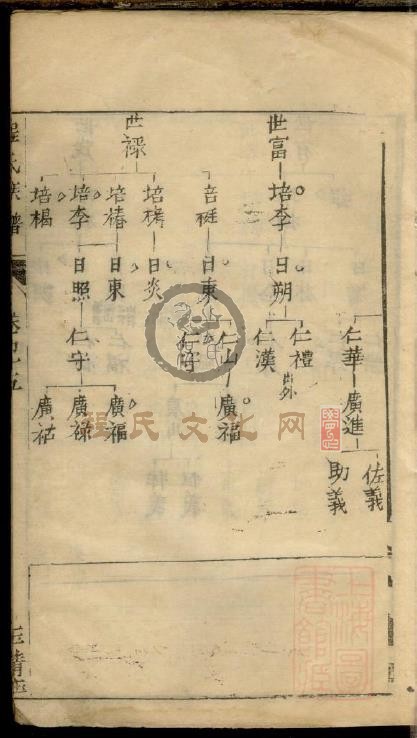 佐義
助義
仁華 廣進
仁禮 出外
仁漢
世富 培李 日朔
日東
仁山 廣福
世祿
培楔 日炎
培椿 日東
培李 日照 仁守
培楬
廣福
廣祿
廣祜
程氏族譜
程氏文化网
上海圖書館藏